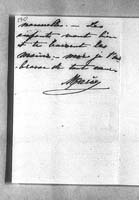 Les
enfants vont bien
et te baisent les
mains, – moi je t'em
brasse de tout cœur